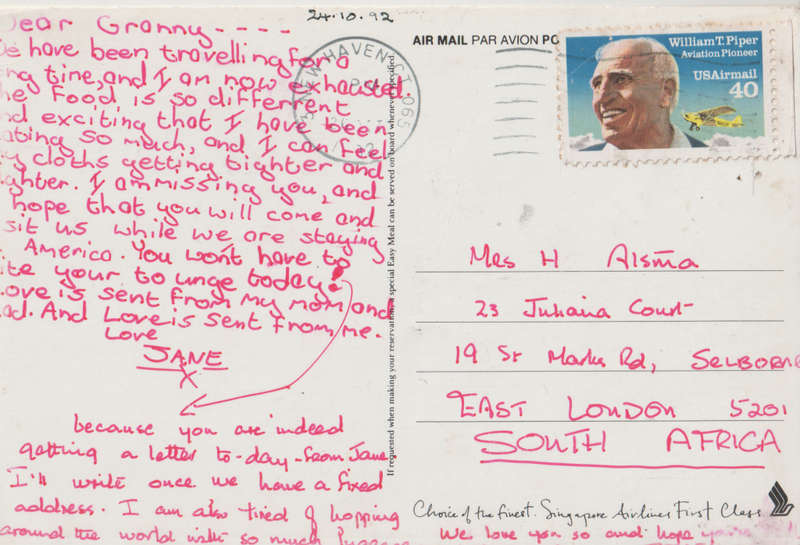 24.10.92
Dear Granny----
have been travelling for a
tine, and I am now exhausted.
Food is so different
and exciting that I have been
eating so much, and I can feel
cloths getting tighter and
tighter. I am missing you, and
hope that you will come and
sit us while we are staying
America. You won't have to
your to unge today!
Love is sent from my mom and
And Love is sent from me.
Love
JANE
X
because you are indeed
getting a letter to-day - from Jane
I'll write once we have a fixed
address. I am also tired of hopping
around the world with so much
If requested when making your reservation, a special Easy Meal can be served on board whenever specified
NEW HAVEN CT 065
AIR MAIL PAR AVION PO
William T. Piper
Aviation Pioneer
USAirmail
40
Mrs H
23 Court
19 St Marks Rd, SELBORNE
EAST LONDON 5201
SOUTH AFRICA
Choice of the finest. Singapore Airlines First Class
We love you so and hope